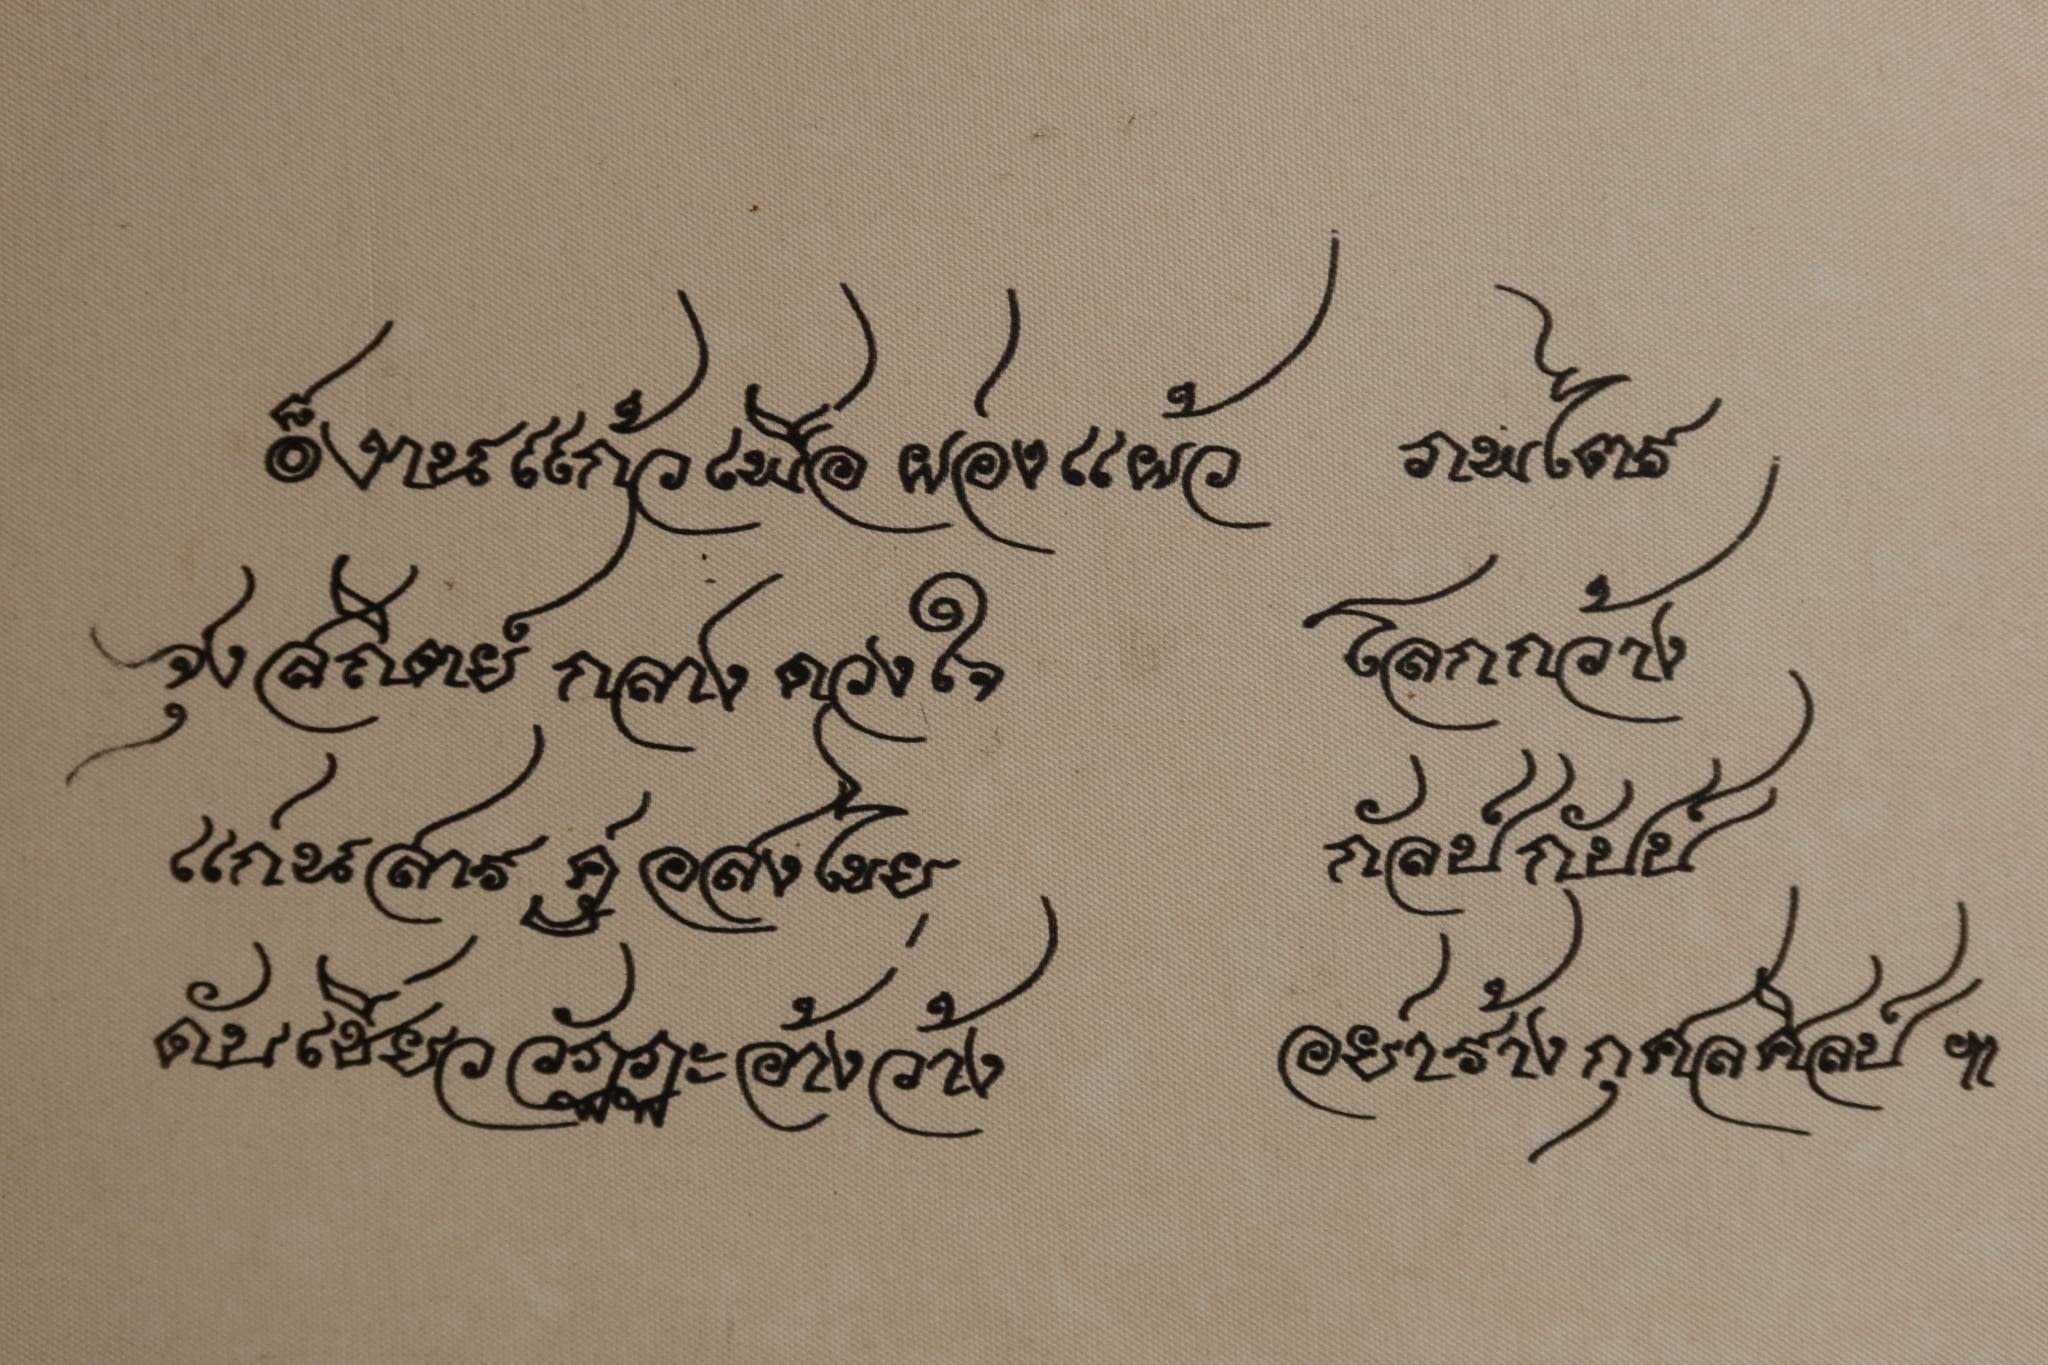 ๏ งานแก้วเพื่อผ่องแผ้ว ภพไตร
จุ่งสถิตย์กลางดวงใจ โลกกว้าง
แก่นสารคู่อสงไขย กัลป์กัปป์
ดับเชี่ยววัฏฏะอ้างว้าง อย่าร้างกุศลศิลป์ ฯ